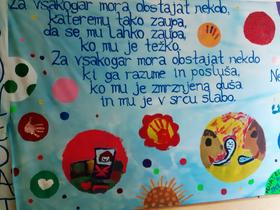 Za vsakogar mora obstajat nekdo,
kateremu tako zaupa,
da se mu lahko zaupa,
ko mu je težko.
Za vsakogar mora obstajat nekdo
ki ga razume in posluša,
ko mu je zmrznjena duša
in mu je v srcu slabo.